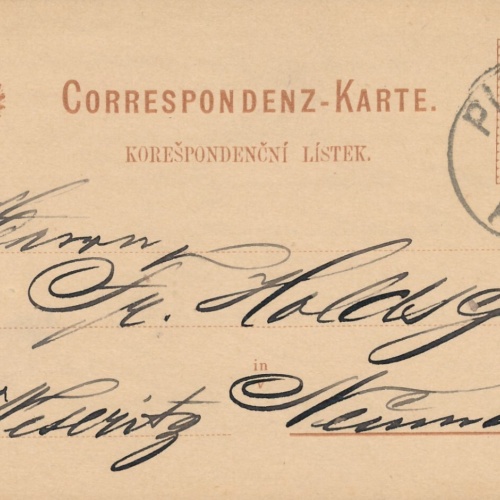 CORRESPONDENZ-KARTE.
KOREŠPONDENČNÍ LÍSTEK.
Herrn
Fr. Holdsg
in
v
Weseritz